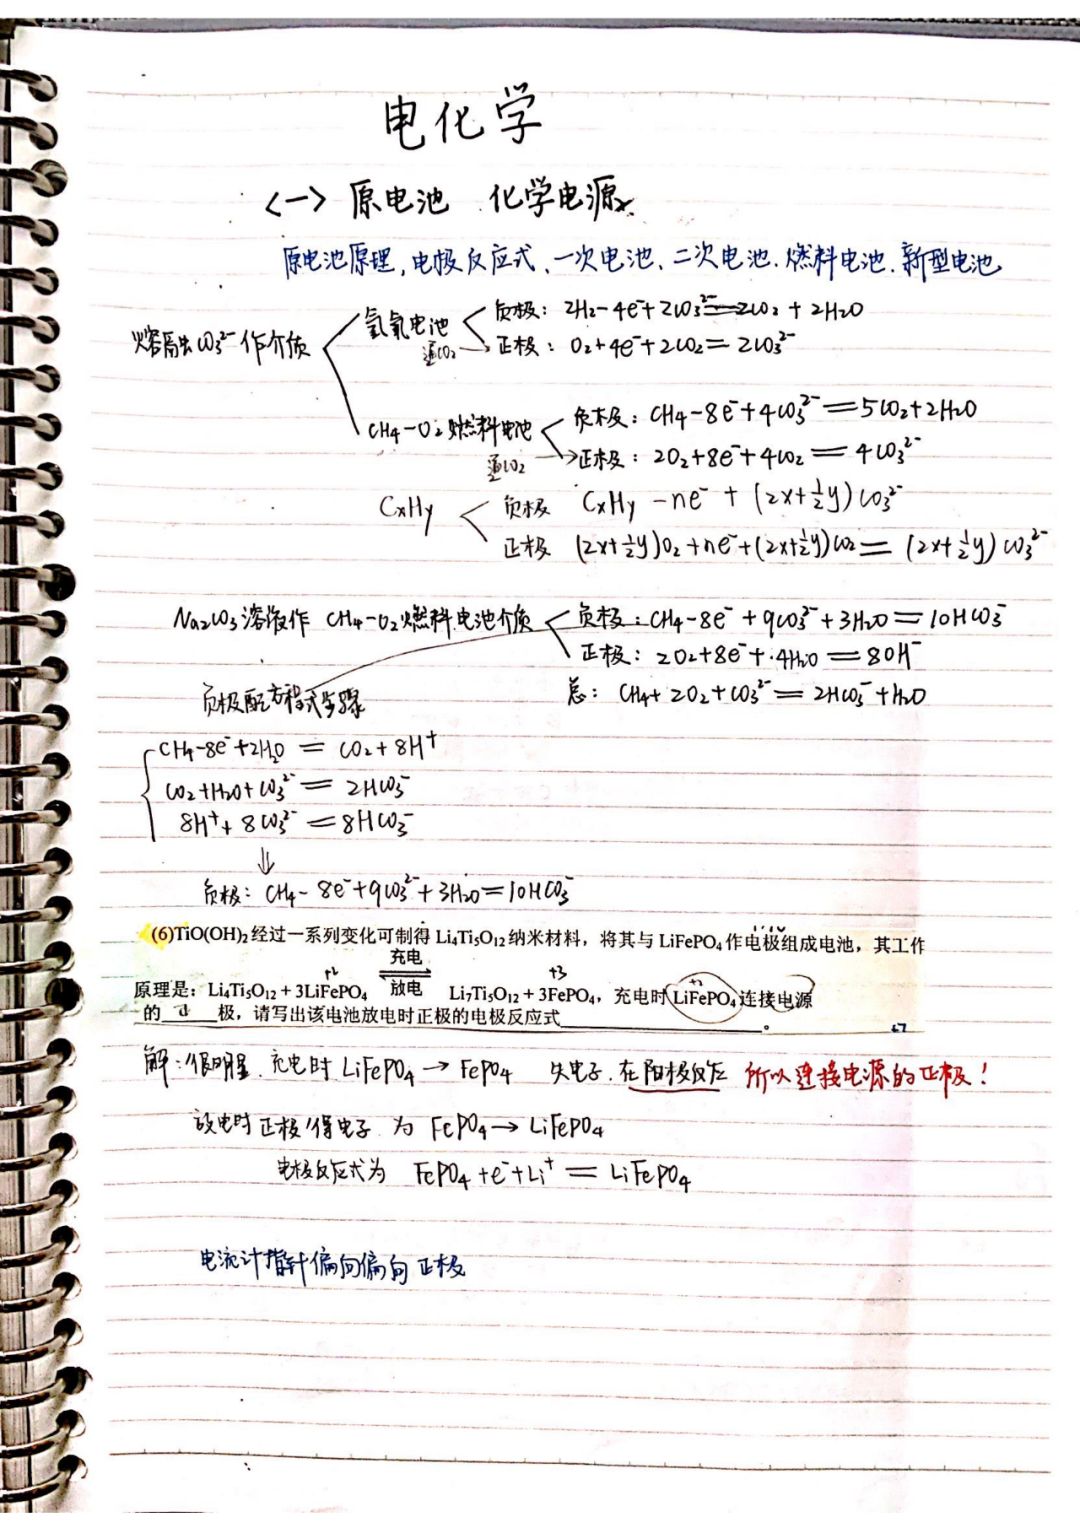 电化学
<一> 原电池 化学电源
原电池原理,电极反应式、一次电池、二次电池.燃料电池.新型电池
熔融CO₃²⁻作介质
氢氧电池
通CO₂
负极：2H₂-4e⁻+2CO₃²⁻=2CO₂+2H₂O
正极：O₂+4e⁻+2CO₂=2CO₃²⁻
CH₄-O₂燃料电池
通CO₂
负极：CH₄-8e⁻+4CO₃²⁻=5CO₂+2H₂O
正极：2O₂+8e⁻+4CO₂=4CO₃²⁻
CxHy
负极 CxHy-ne⁻+(2x+½y)CO₃²⁻
正极 (2x+½y)O₂+ne⁻+(2x+½y)CO₂=(2x+½y)CO₃²⁻
Na₂CO₃溶液作 CH₄-O₂燃料电池介质
负极：CH₄-8e⁻+9CO₃²⁻+3H₂O=10HCO₃⁻
正极：2O₂+8e⁻+4H₂O=8OH⁻
总：CH₄+2O₂+CO₃²⁻=2HCO₃⁻+H₂O
负极配方程式步骤
CH₄-8e⁻+2H₂O=CO₂+8H⁺
CO₂+H₂O+CO₃²⁻=2HCO₃⁻
8H⁺+8CO₃²⁻=8HCO₃⁻
⇓
负极：CH₄-8e⁻+9CO₃²⁻+3H₂O=10HCO₃⁻
(6)TiO(OH)₂经过一系列变化可制得Li₄Ti₅O₁₂纳米材料，将其与LiFePO₄作电极组成电池，其工作
原理是：Li₄Ti₅O₁₂+3LiFePO₄ 充电⇌放电 Li₇Ti₅O₁₂+3FePO₄，充电时LiFePO₄连接电源
+2 +3
的____极，请写出该电池放电时正极的电极反应式____。
解：很明显.充电时 LiFePO₄→FePO₄ 失电子.在阳极反应 所以连接电源的正极！
放电时正极得电子 为 FePO₄→LiFePO₄
电极反应式为 FePO₄+e⁻+Li⁺=LiFePO₄
电流计指针偏向偏向正极